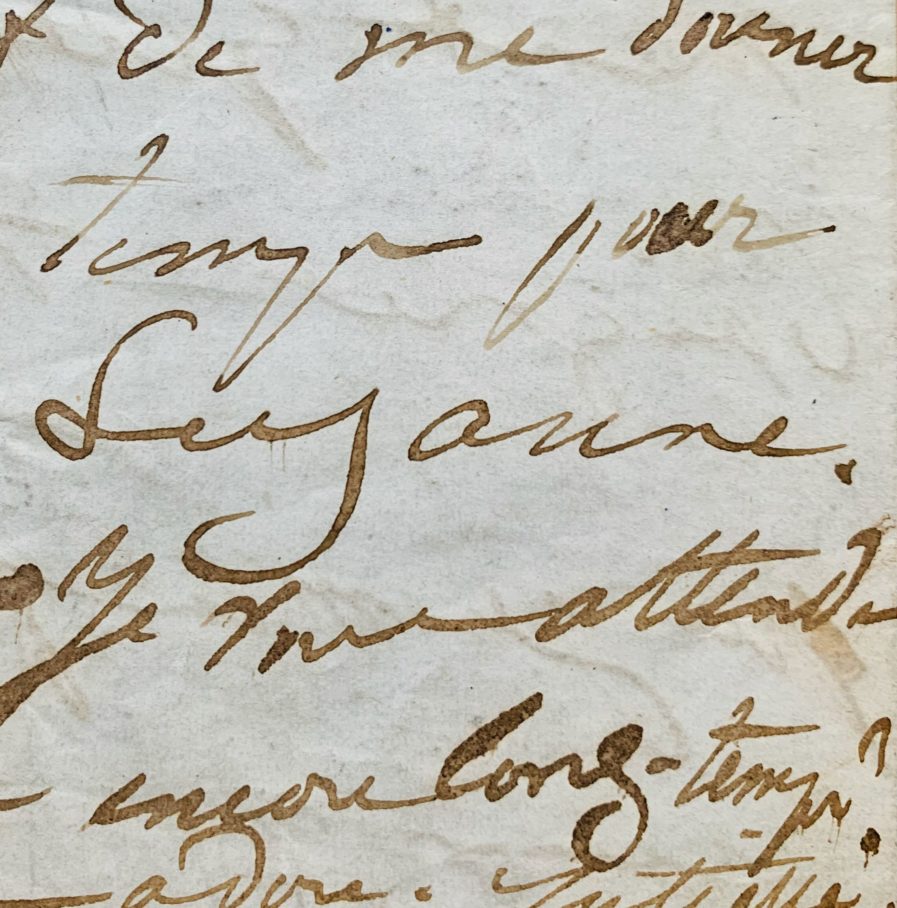 de me donner
temps pour
Suzanne.
Je me attend
encore long-temps?
adore.